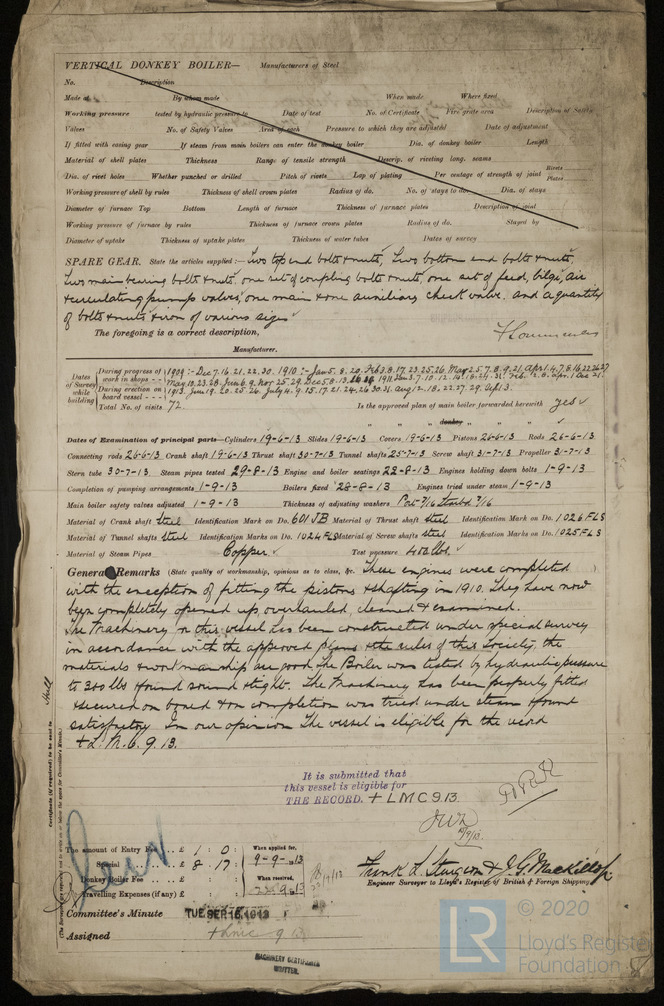 VERTICAL DONKEY BOILER— Manufacturers of Steel
No. Description
Made at By whom made When made Where fixed
Working pressure tested by hydraulic pressure to Date of test No. of Certificate Fire grate area Description of Safety
Valves No. of Safety Valves Area of each Pressure to which they are adjusted Date of adjustment
If fitted with easing gear If steam from main boilers can enter the donkey boiler Dia. of donkey boiler Length
Material of shell plates Thickness Range of tensile strength Descrip. of riveting long. seams
Dia. of rivet holes Whether punched or drilled Pitch of rivets Lap of plating Per centage of strength of joint Rivets Plates
Working pressure of shell by rules Thickness of shell crown plates Radius of do. No. of stays to do. Dia. of stays
Diameter of furnace Top Bottom Length of furnace Thickness of furnace plates Description of joint
Working pressure of furnace by rules Thickness of furnace crown plates Radius of do. Stayed by
Diameter of uptake Thickness of uptake plates Thickness of water tubes Dates of survey
SPARE GEAR. State the articles supplied:— Two top end bolts & nuts, Two bottom end bolts & nuts,
Two main bearing bolts & nuts, one set of coupling bolts & nuts, one set of feed, bilge, air
& circulating pump valves, one main & one auxiliary check valve, and a quantity
of bolts & nuts & iron of various sizes
The foregoing is a correct description,
Manufacturer.
Dates of Survey while building
During progress of work in shops - - 1909:- Dec 7.16.21.22.30. 1910:- Jan 5.8.20. Feb 3.8.17.23.25.26. Mar
During erection on board vessel - - - 1913. Jun 19.20.25.26. July 4.9.15.17.21.24.26.30.31. Aug 12.18.22.27.29. Sep 1.3.
Total No. of visits 72. Is the approved plan of main boiler forwarded herewith yes
" " " donkey " " "
Dates of Examination of principal parts—Cylinders 19-6-13 Slides 19-6-13 Covers 19-6-13 Pistons 26-6-13 Rods 26-6-13
Connecting rods 26-6-13 Crank shaft 19-6-13 Thrust shaft 30-7-13 Tunnel shafts 25-7-13 Screw shaft 31-7-13 Propeller 31-7-13
Stern tube 30-7-13 Steam pipes tested 29-8-13 Engine and boiler seatings 22-8-13 Engines holding down bolts 1-9-13
Completion of pumping arrangements 1-9-13 Boilers fixed 28-8-13 Engines tried under steam 1-9-13
Main boiler safety valves adjusted 1-9-13 Thickness of adjusting washers Port 7/16 Starbd 7/16
Material of Crank shaft Steel Identification Mark on Do. 601 JB Material of Thrust shaft Steel Identification Mark on Do. 1026 FLS
Material of Tunnel shafts Steel Identification Marks on Do. 1024 FLS Material of Screw shafts Steel Identification Marks on Do. 1025 FLS
Material of Steam Pipes Copper Test pressure 400 lbs
General Remarks (State quality of workmanship, opinions as to class, &c. These engines were completed
with the exception of fitting the pistons & shafting in 1910. They have now
been completely opened up, overhauled, cleaned & examined.
The Machinery in this vessel has been constructed under special survey
in accordance with the approved plans & the rules of this Society, the
materials & workmanship are good. The Boiler was tested by hydraulic pressure
to 360 lbs & found sound & tight. The Machinery has been properly fitted
& secured on board & on completion was tried under steam & found
satisfactory. In our opinion the vessel is eligible for the record
+ L.M.C. 9.13.
It is submitted that
this vessel is eligible for
THE RECORD. + LMC 9.13.
Certificate (if required) to be sent to Hull
The amount of Entry Fee .. £ 1 : 0 : When applied for,
Special .. .. £ 8 : 17 : 9-9-13
Donkey Boiler Fee .. £ : : When received,
Travelling Expenses (if any) £ : :
Frank L. Sturgeon & J. G. Mackillop
Engineer Surveyor to Lloyd's Register of British & Foreign Shipping.
Committee's Minute TUE. SEP. 16. 1913
Assigned + LMC 9.13
MACHINERY CERTIFICATE
WRITTEN.
© 2020
LR
Lloyd's Register
Foundation